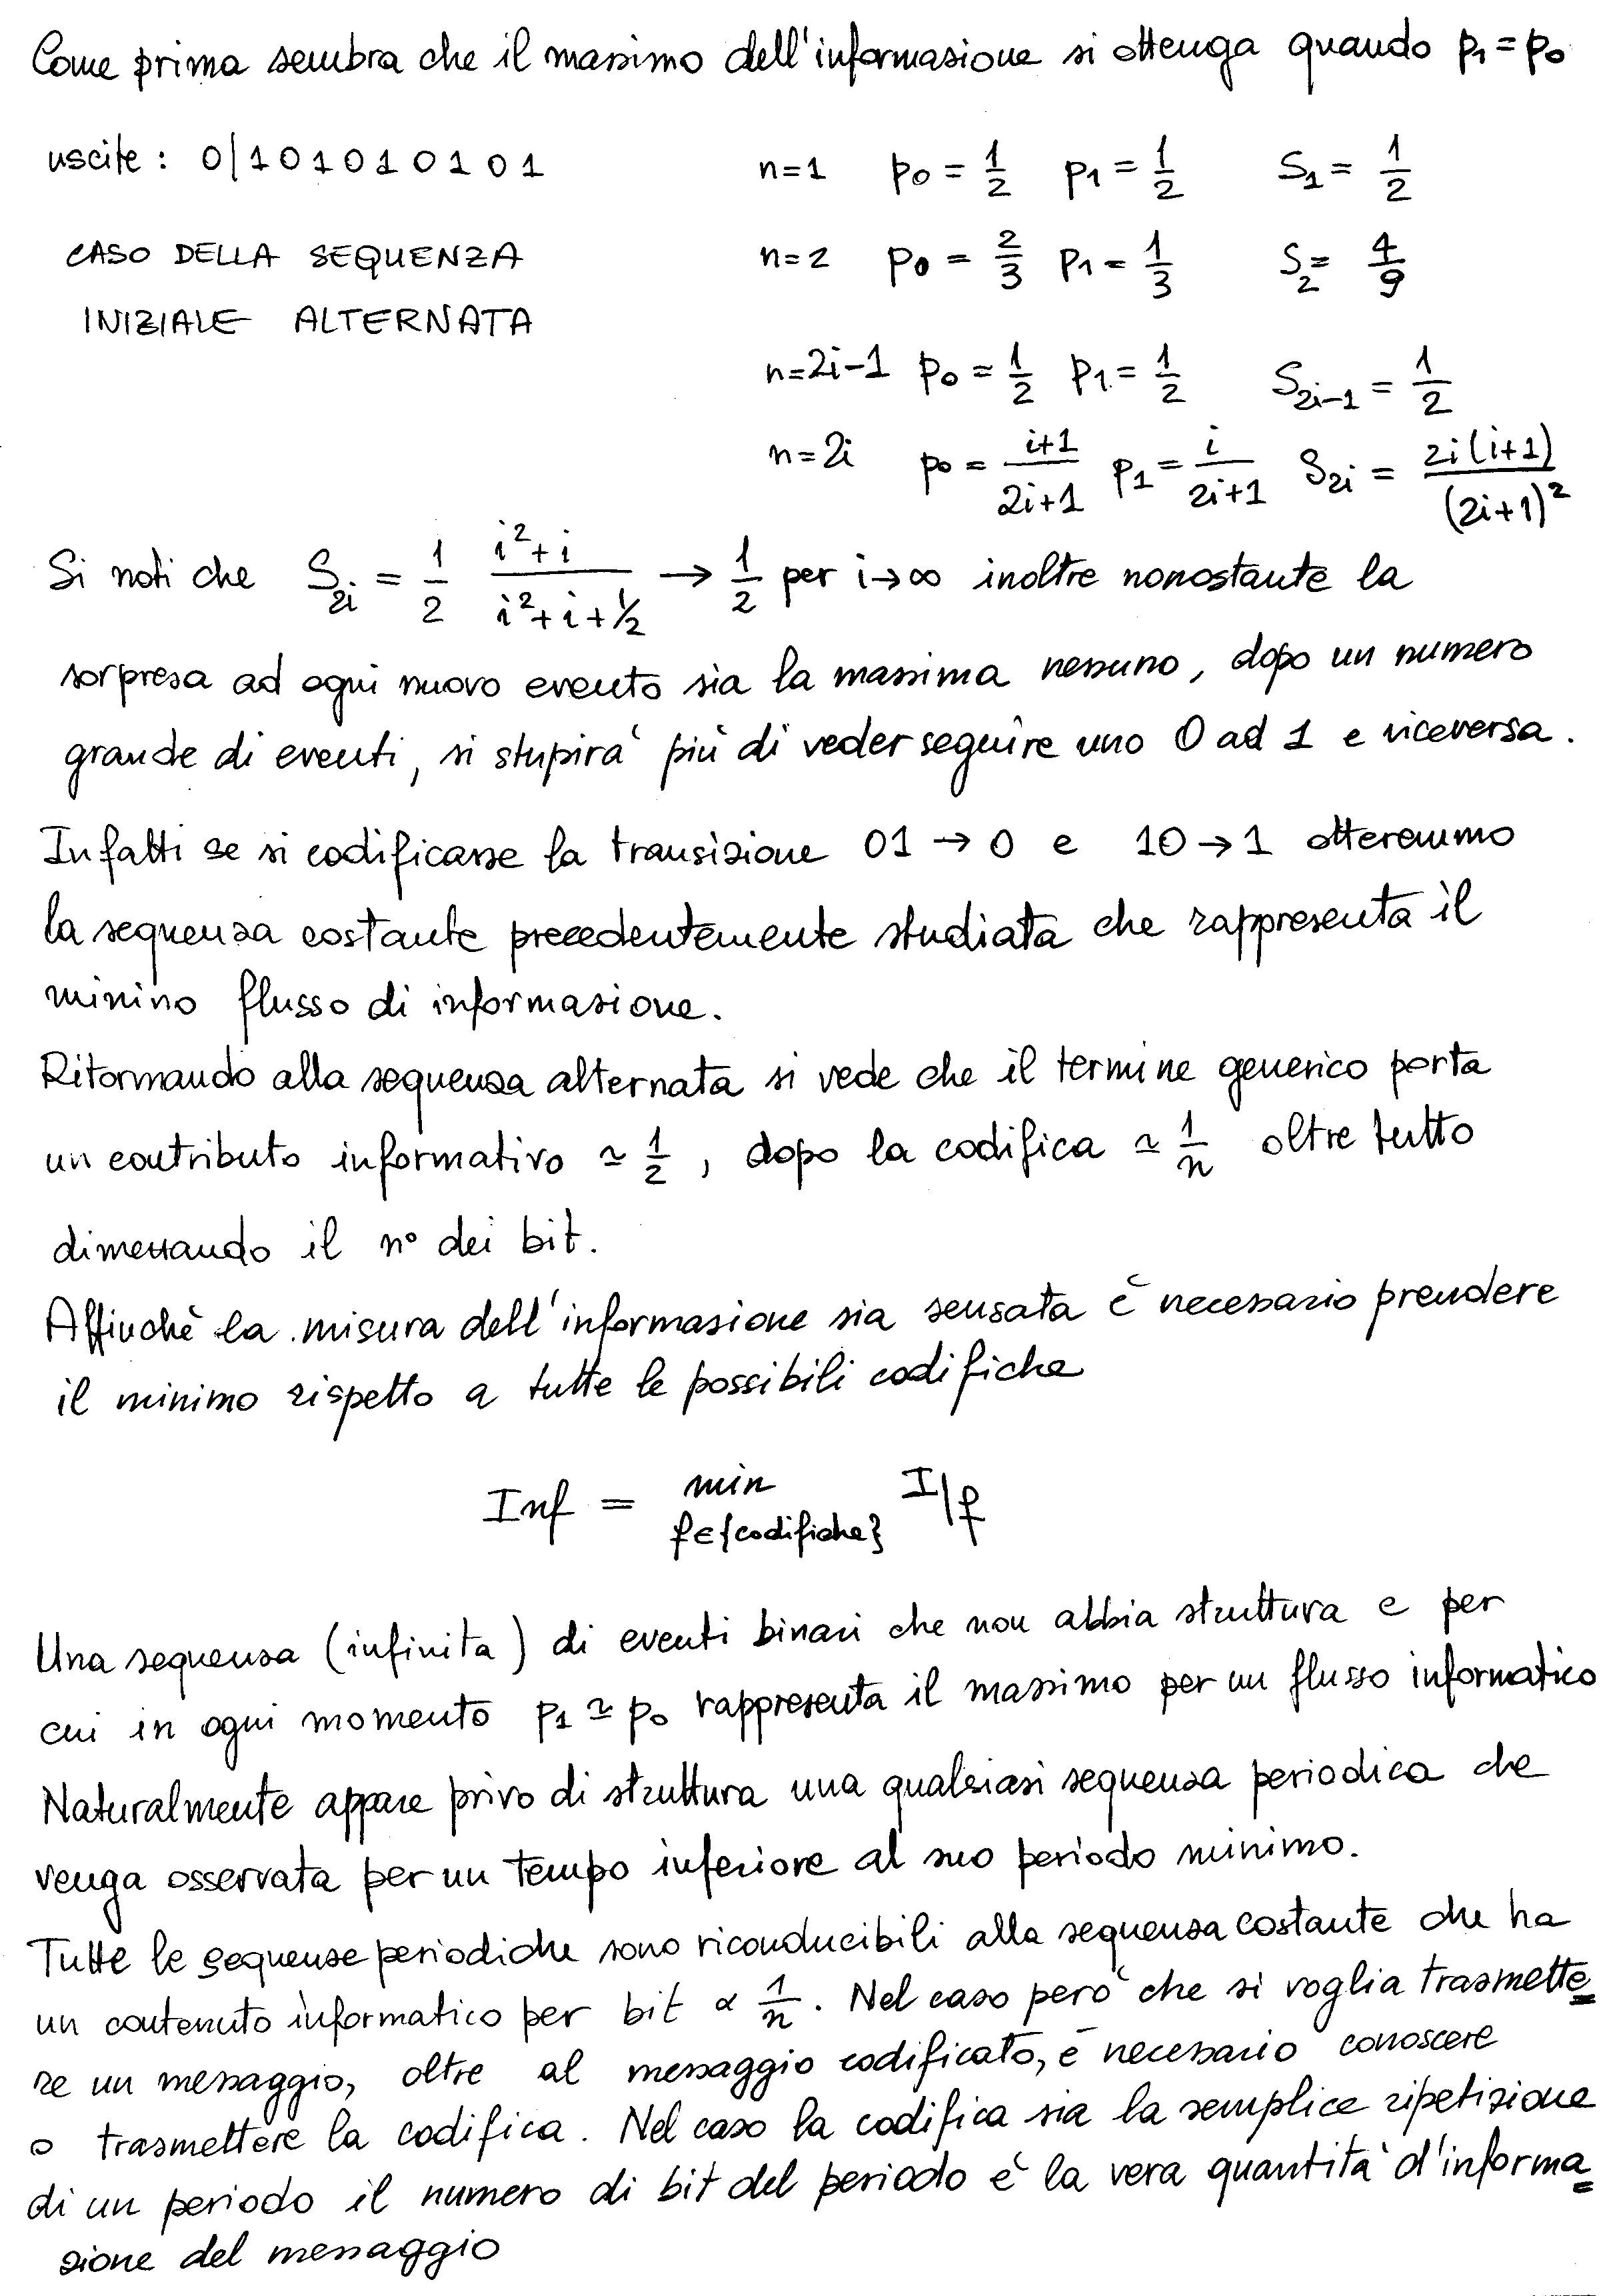 Come prima sembra che il massimo dell'informazione si ottenga quando p₁ = p₀
uscite : 0|101010101 n=1 p₀ = 1/2 p₁ = 1/2 S₁ = 1/2
CASO DELLA SEQUENZA n=2 p₀ = 2/3 p₁ = 1/3 S₂ = 4/9
INIZIALE ALTERNATA
n=2i-1 p₀ = 1/2 p₁ = 1/2 S₂ᵢ₋₁ = 1/2
n=2i p₀ = (i+1)/(2i+1) p₁ = i/(2i+1) S₂ᵢ = 2i(i+1)/(2i+1)²
Si noti che S₂ᵢ = 1/2 (i²+i)/(i²+i+½) → 1/2 per i→∞ inoltre nonostante la
sorpresa ad ogni nuovo evento sia la massima nessuno, dopo un numero
grande di eventi, si stupirà più di veder seguire uno 0 ad 1 e viceversa.
Infatti se si codificasse la transizione 01 → 0 e 10 → 1 otteremmo
la sequenza costante precedentemente studiata che rappresenta il
minino flusso di informazione.
Ritornando alla sequenza alternata si vede che il termine generico porta
un contributo informativo ≃ 1/2 , dopo la codifica ≃ 1/n oltre tutto
dimezzando il n° dei bit.
Affinchè la misura dell'informazione sia sensata è necessario prendere
il minimo rispetto a tutte le possibili codifiche
Inf = min f∈{codifiche} I|f
Una sequenza (infinita) di eventi binari che non abbia struttura e per
cui in ogni momento p₁ ≃ p₀ rappresenta il massimo per un flusso informatico
Naturalmente appare privo di struttura una qualsiasi sequenza periodica che
venga osservata per un tempo inferiore al suo periodo minimo.
Tutte le sequenze periodiche sono riconducibili alla sequenza costante che ha
un contenuto informatico per bit ∝ 1/n. Nel caso però che si voglia trasmette=
re un messaggio, oltre al messaggio codificato, è necessario conoscere
o trasmettere la codifica. Nel caso la codifica sia la semplice ripetizione
di un periodo il numero di bit del periodo è la vera quantità d'informa=
zione del messaggio